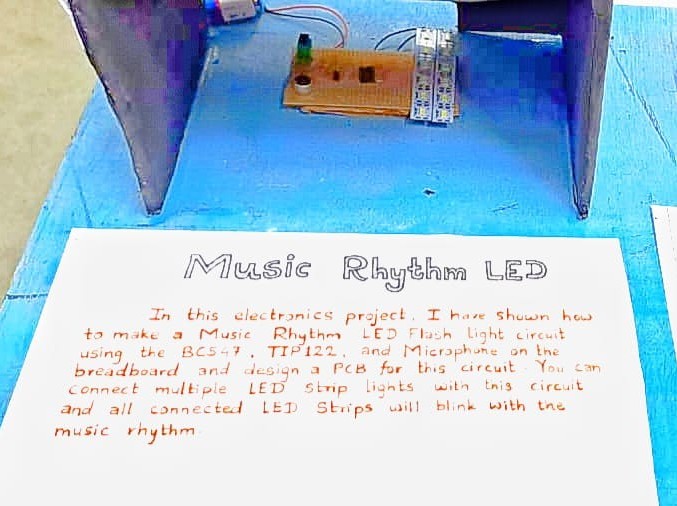 Music Rhythm LED
In this electronics project, I have shown how
to make a Music Rhythm LED Flash light circuit
using the BC547, TIP122, and Microphone on the
breadboard and design a PCB for this circuit. You can
connect multiple LED strip lights with this circuit
and all connected LED Strips will blink with the
music rhythm.